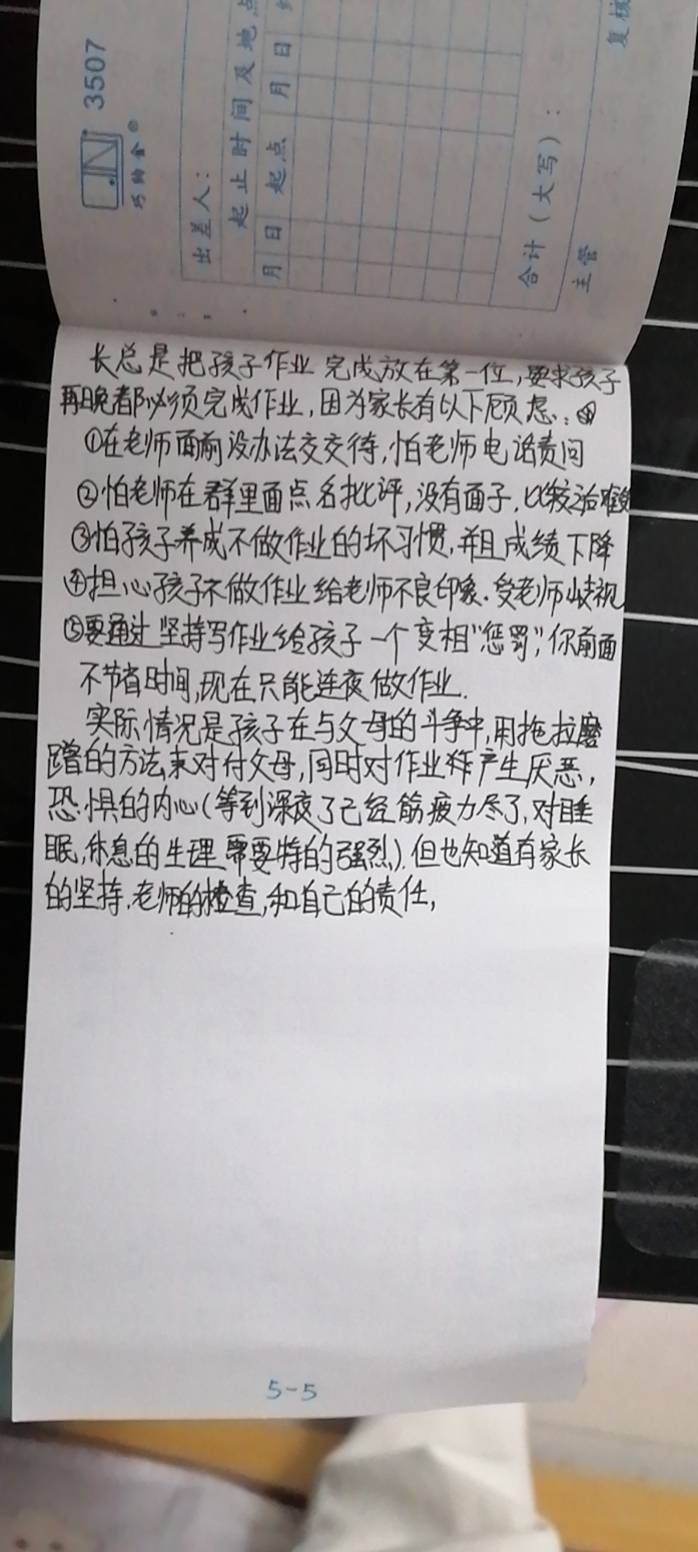 3507
巧的金®
出差人：
起止时间及地点
月 日 起点 月 日
合计（大写）：
主管
复核
长总是把孩子作业完成放在第一位,要求孩子
再晚都必须完成作业,因为家长有以下顾虑:
①在老师面前没办法交交待,怕老师电话责问
②怕老师在群里面点名批评,没有面子,比较
③怕孩子养成不做作业的坏习惯,并且成绩下降
④担心孩子不做作业给老师不良印象.受老师岐视
⑤要通过坚持写作业给孩子一个变相"惩罚",你前面
不节省时间,现在只能连夜做作业.
实际情况是孩子在与父母的斗争中,用拖拉磨
蹭的方法,来对付父母,同时对作业产生厌恶,
恐惧的内心(等到深夜了已经筋疲力尽了,对睡
眠,休息的生理需要特的强烈).但也知道有家长
的坚持,老师的检查,和自己的责任,
5-5